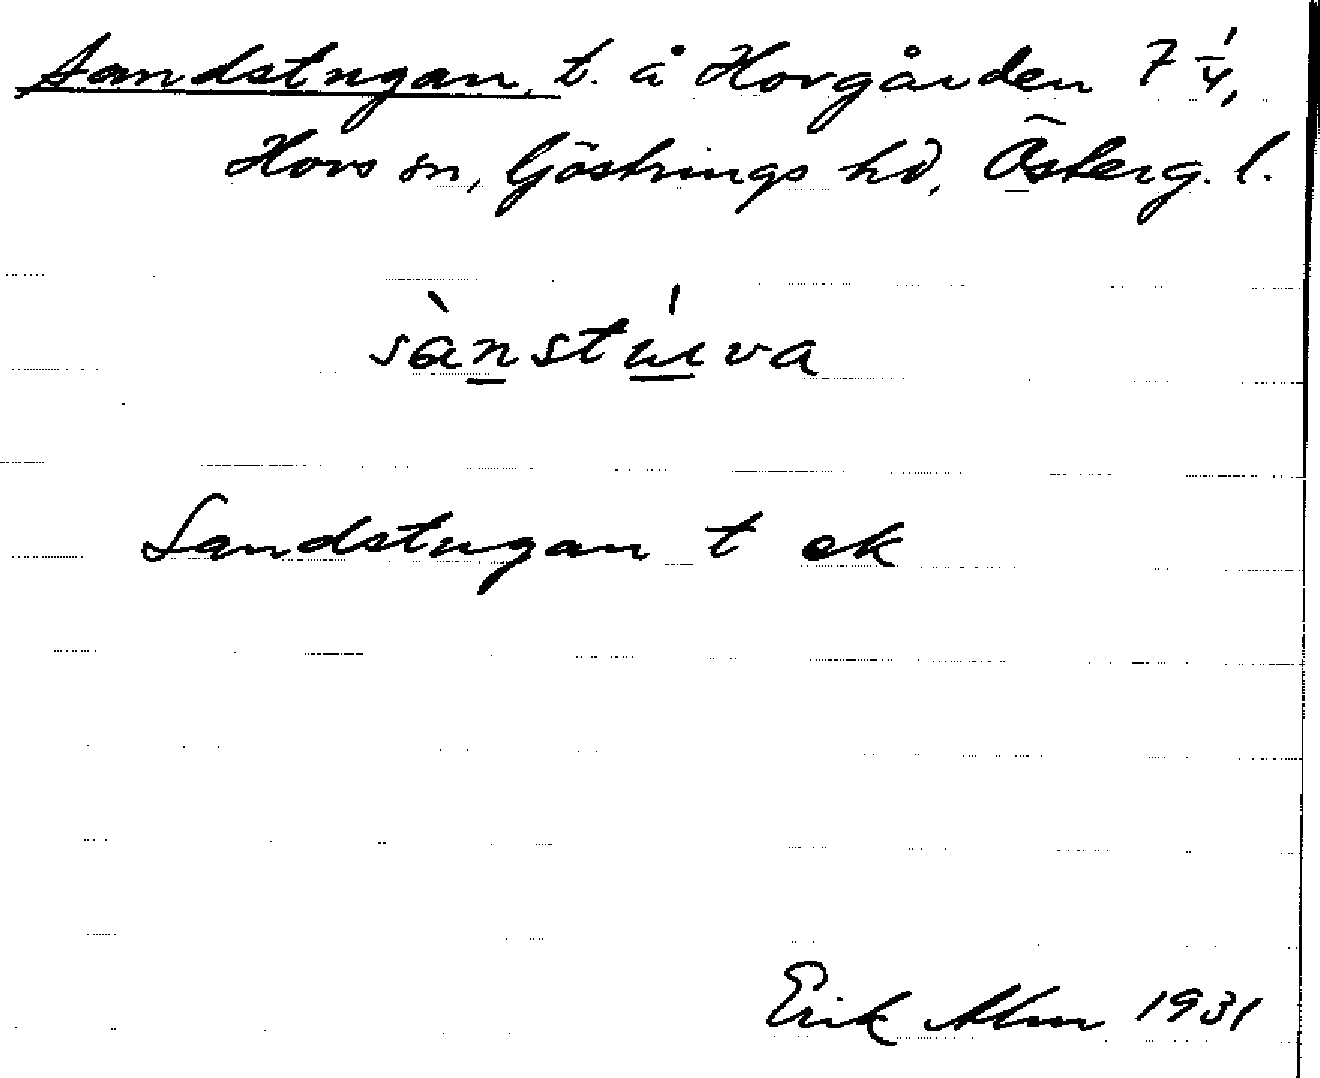 Sandstugan, t. å Hovgården 7 1/4,
Hovs sn, Göstrings hd, Österg. l.
sànstúva
Sandstugan t ek
Erik Alm 1931